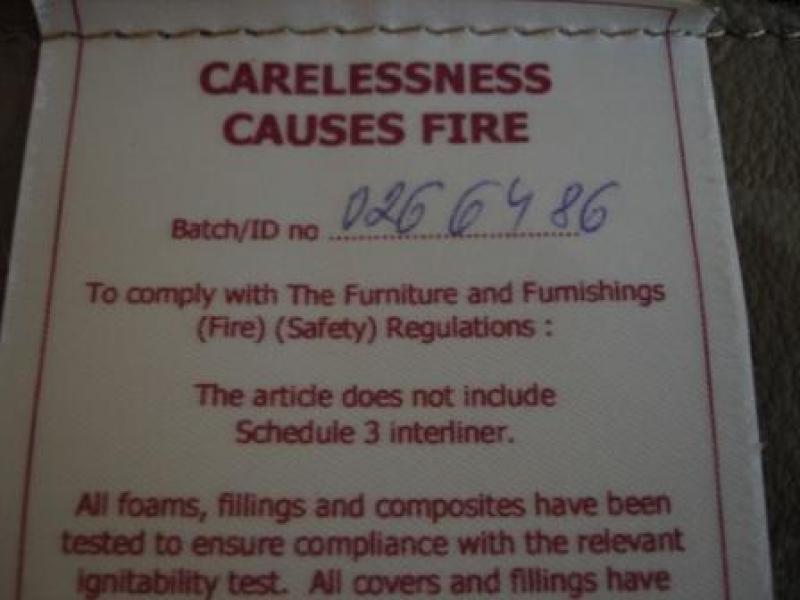 CARELESSNESS
CAUSES FIRE
Batch/ID no 0266486
To comply with The Furniture and Furnishings
(Fire) (Safety) Regulations :
The article does not include
Schedule 3 interliner.
All foams, fillings and composites have been
tested to ensure compliance with the relevant
ignitability test. All covers and fillings have